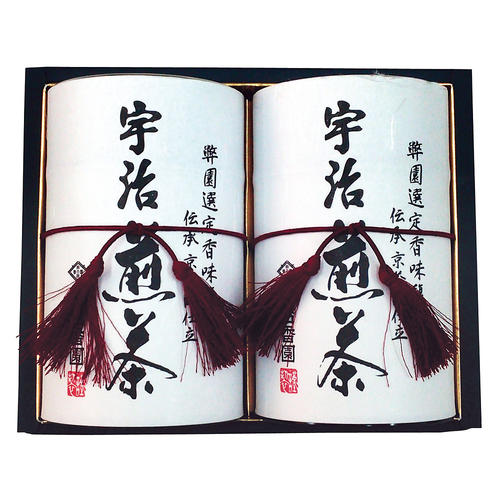 宇治煎茶
弊園選定香味
伝承京 仕立
園
宇治煎茶
弊園選定香味
伝承京 仕立
園